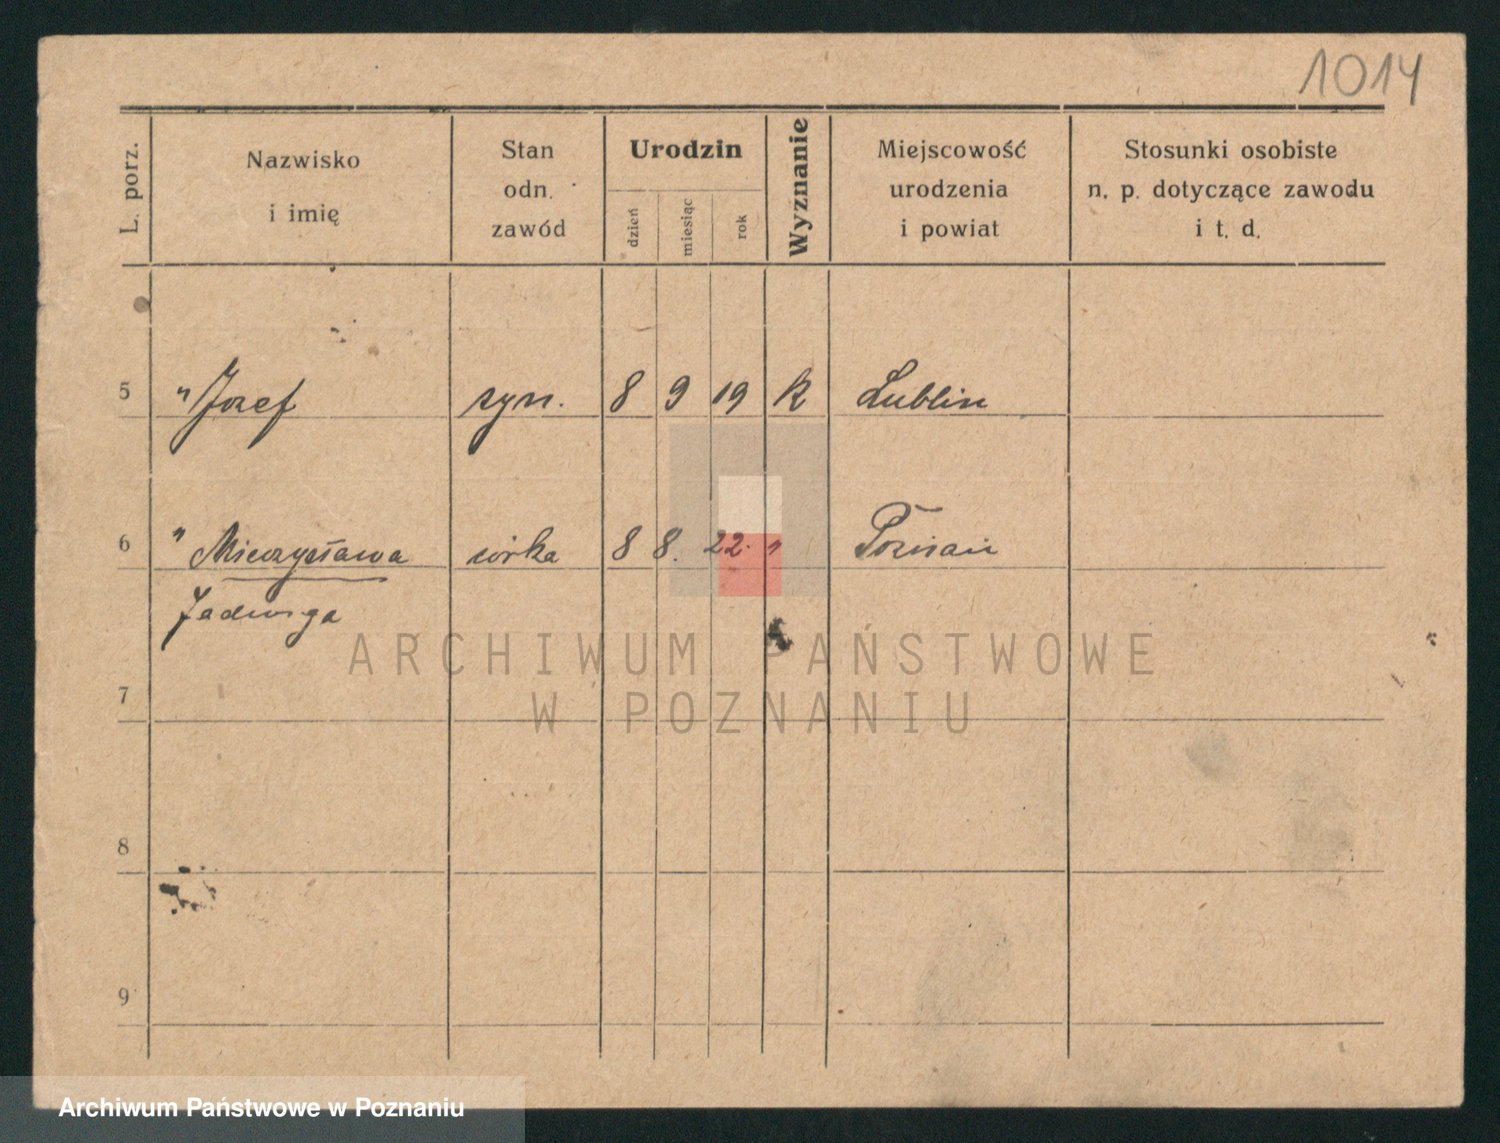 1014
L. porz.
Nazwisko
i imię
Stan
odn.
zawód
Urodzin
dzień
miesiąc
rok
Wyznanie
Miejscowość
urodzenia
i powiat
Stosunki osobiste
n. p. dotyczące zawodu
i t. d.
5 " Józef syn. 8 9 19 k Lublin
6 " Mieczysława córka 8 8. 22. " Poznań
Jadwiga
7
8
9
ARCHIWUM PAŃSTWOWE
W POZNANIU
Archiwum Państwowe w Poznaniu